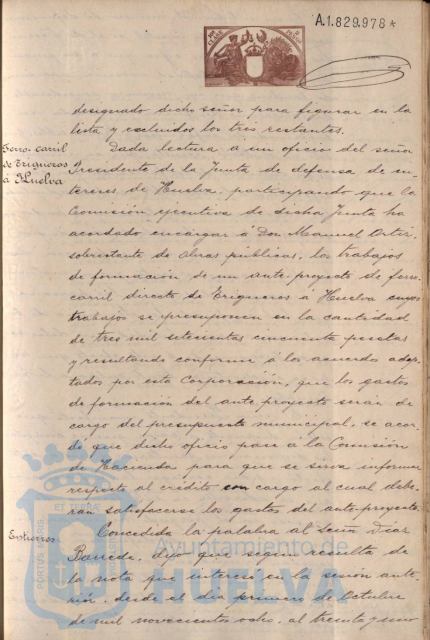 A.1.829.978*
designado dicho señor para figurar en la
lista y excluidos los tres restantes.
Ferro-carril
de Trigueros
á Huelva
Dada lectura á un oficio del señor
Presidente de la Junta de defensa de in-
tereses de Huelva, participando que la
Comisión ejecutiva de dicha Junta ha
acordado encargar á Don Manuel Ortiz,
sobrestante de Obras públicas, los trabajos
de formación de un ante-proyecto de ferro-
carril directo de Trigueros á Huelva cuyos
trabajos se presuponen en la cantidad
de tres mil setecientas cincuenta pesetas
y resultando conforme á los acuerdos adop-
tados por esta Corporación, que los gastos
de formación del ante proyecto serán de
cargo del presupuesto municipal, se acor-
dó que dicho oficio pase á la Comisión
de Hacienda para que se sirva informar
respecto al crédito con cargo al cual debe-
rán satisfacerse los gastos del ante-proyecto.
Concedida la palabra al Señor Díaz
Barreda, dijo que según resulta de
la nota que interesó en la sesión ante-
rior, desde el día primero de Octubre
de mil novecientos ocho, al treinta y uno
PORTUS MARIS
ET TERRAE
Ayuntamiento de
HUELVA